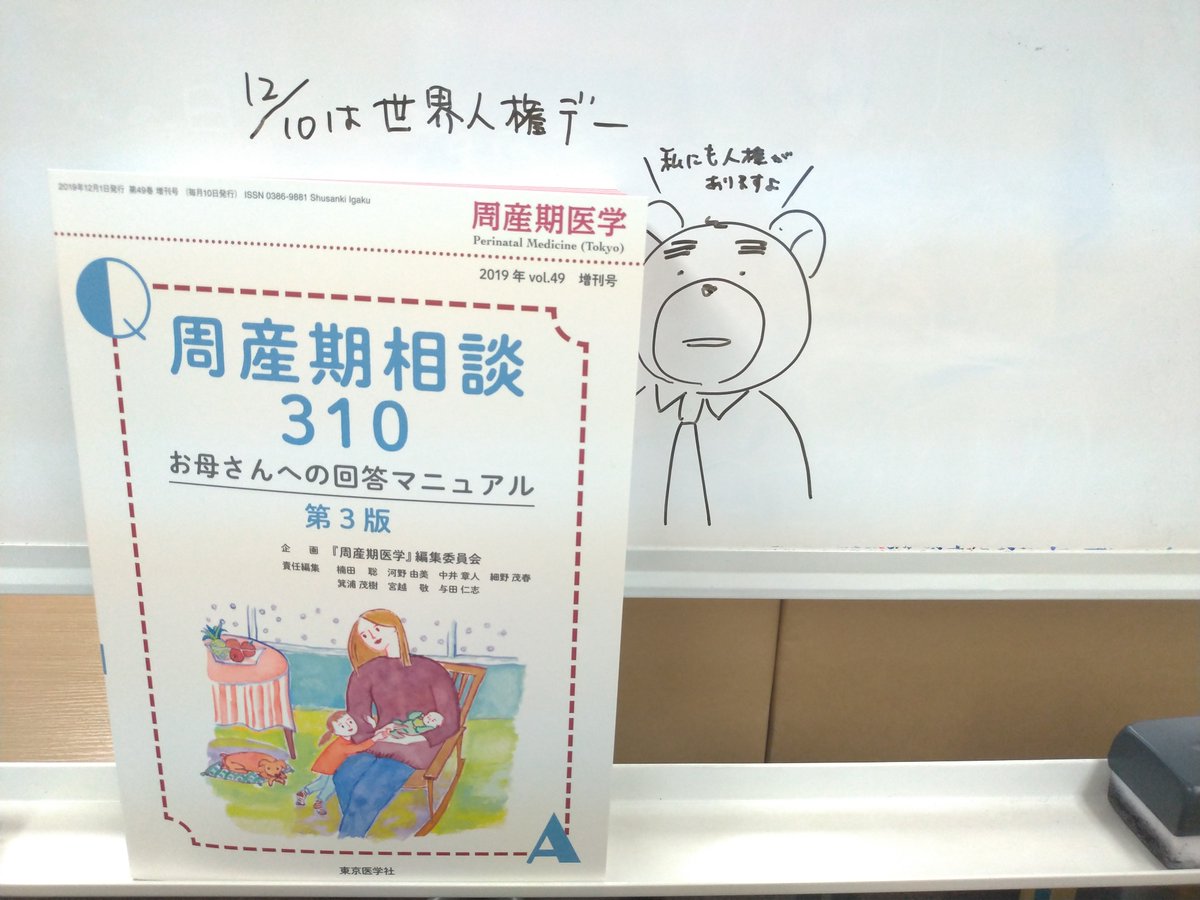 12/10は世界人権デー
私にも人権が
ありますよ
2019年12月1日発行 第49巻 増刊号 (毎月10日発行) ISSN 0386-9881 Shusanki Igaku
周産期医学
Perinatal Medicine (Tokyo)
2019年 vol.49 増刊号
Q
周産期相談
310
お母さんへの回答マニュアル
第3版
企画 『周産期医学』編集委員会
責任編集 楠田 聡 河野 由美 中井 章人 細野 茂春
箕浦 茂樹 宮越 敬 与田 仁志
A
東京医学社